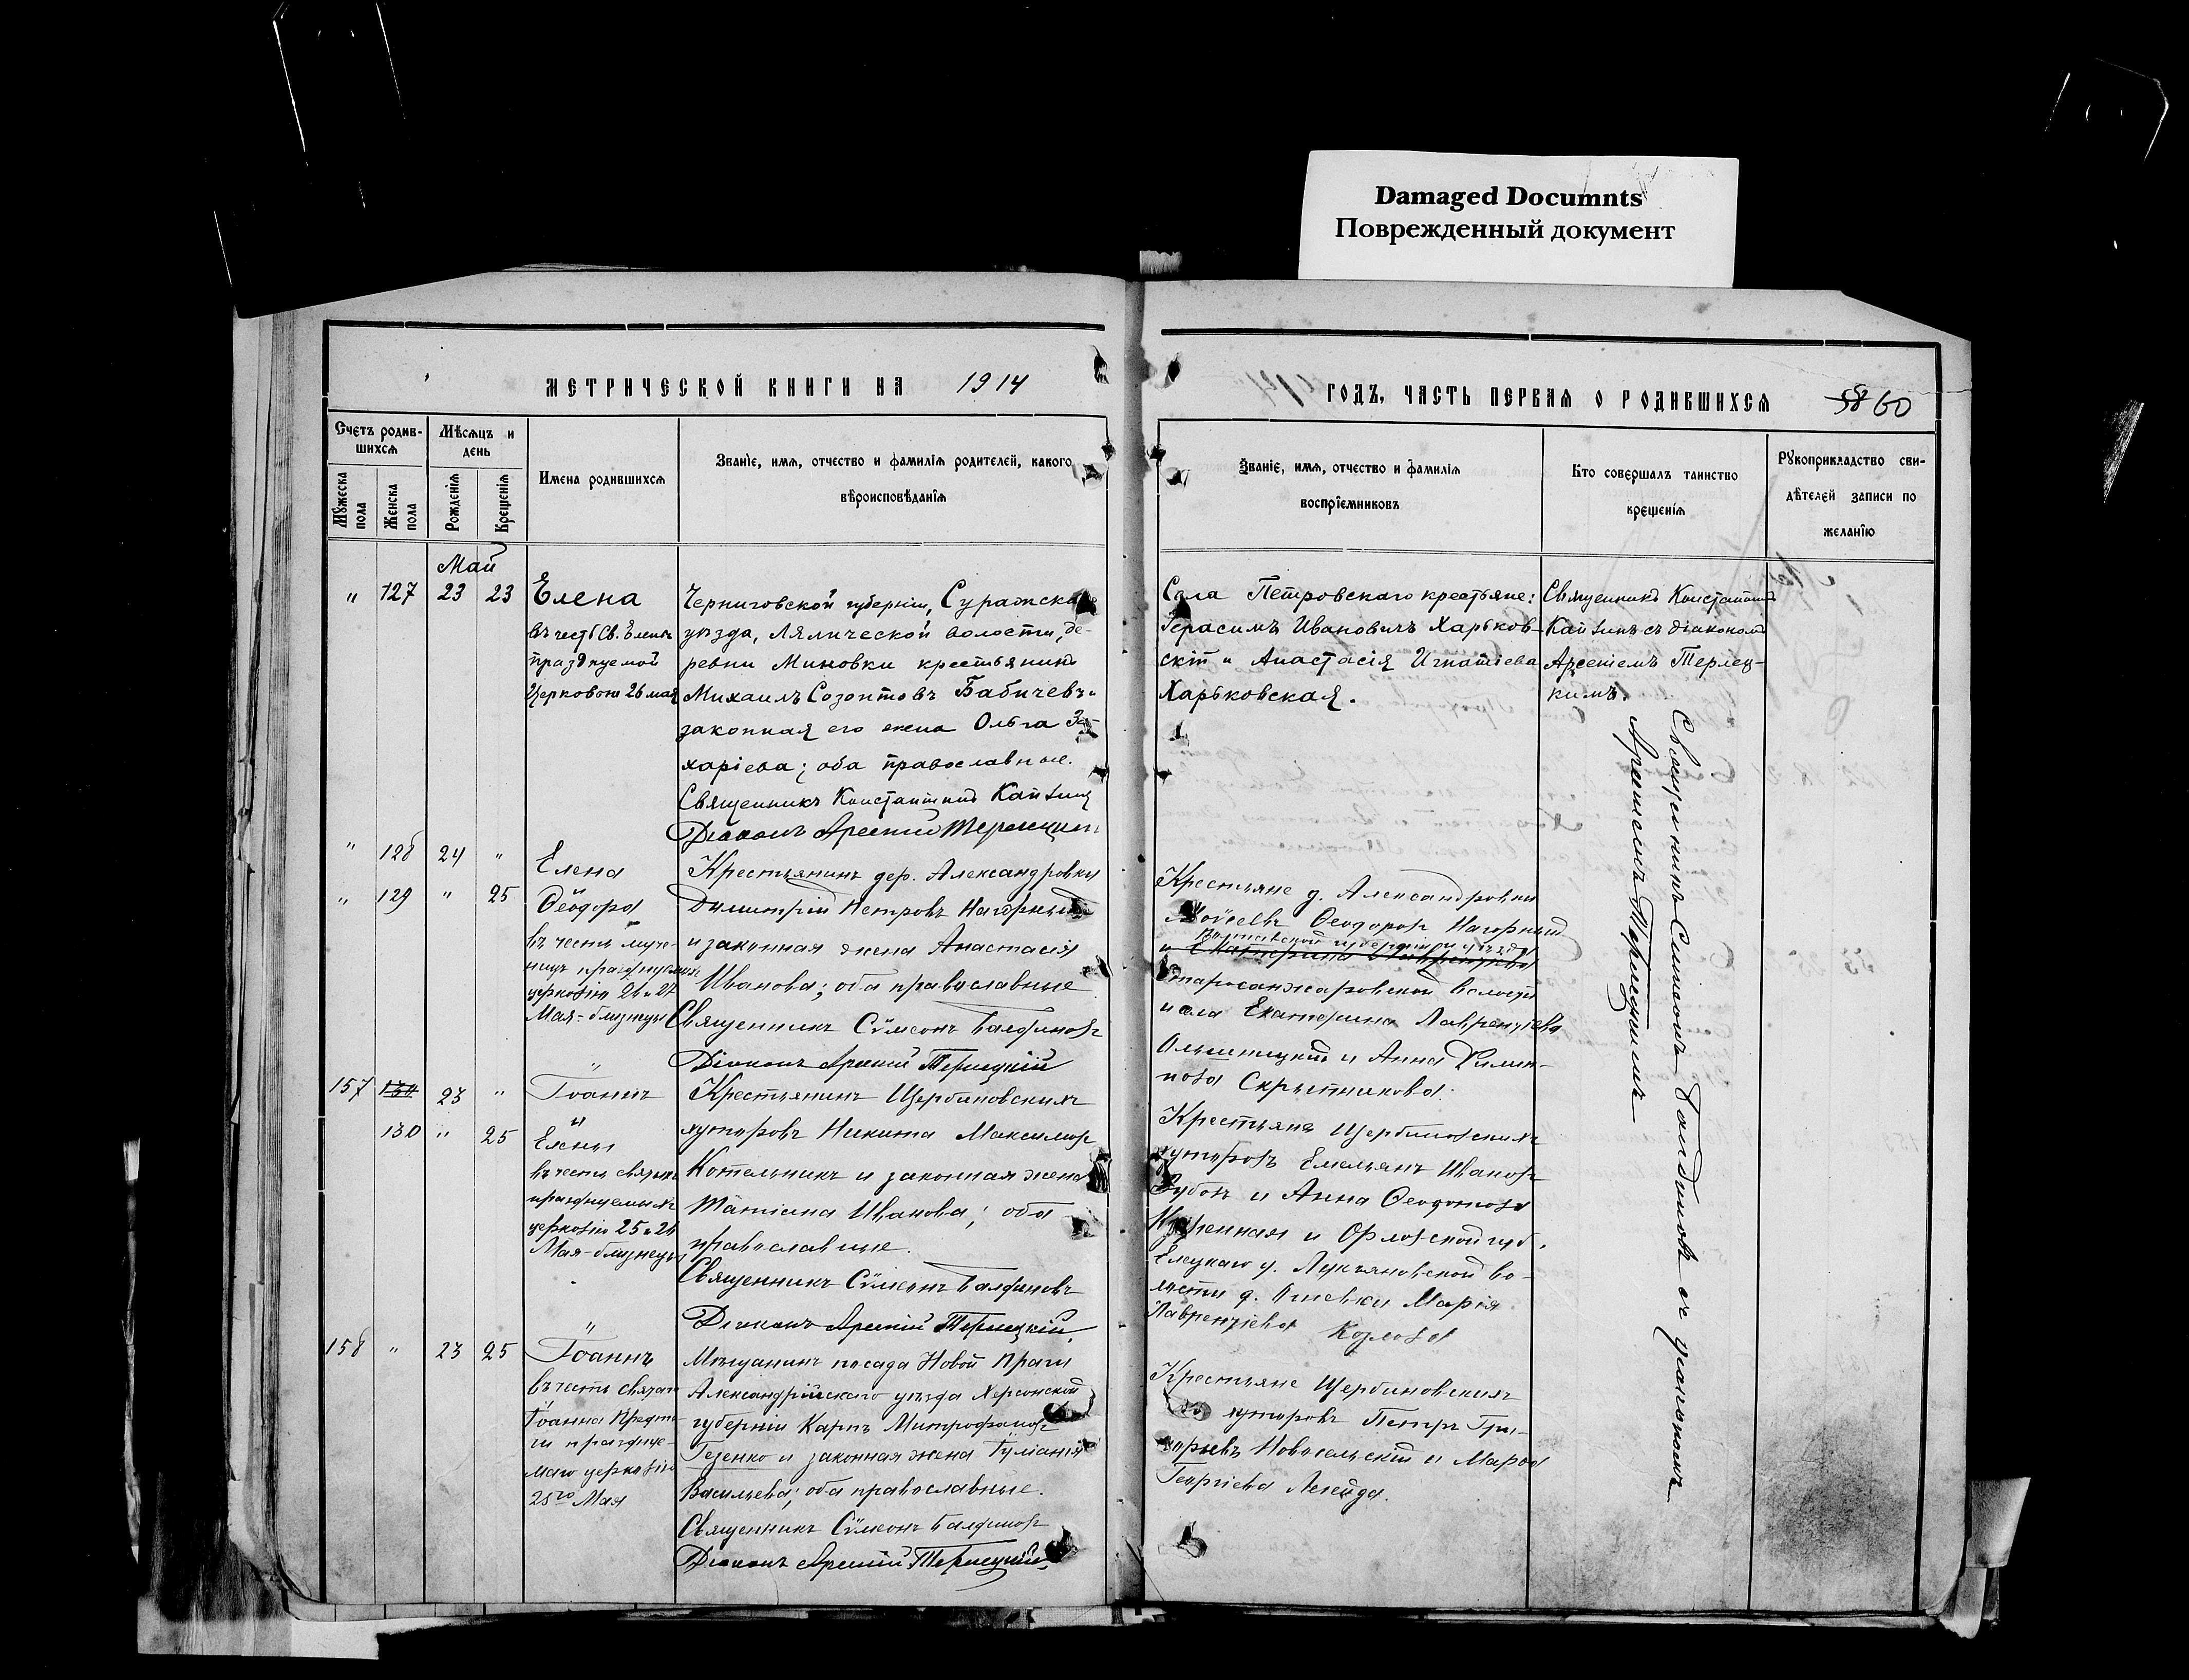 Damaged Documnts
Поврежденный документ
МЕТРИЧЕСКОЙ КНИГИ НА 1914
Счетъ родив-
шихся
Мѣсяцъ и
день
Мужеска пола
Женска пола
Рожденія
Крещенія
Имена родившихся
Званіе, имя, отчество и фамилія родителей, какого
вѣроисповѣданія
Май
" 127 23 23
Елена
въ честь Св. Елены
празднуемой
Церковью 26 мая
Черниговской губерніи, Суражска
уѣзда, Лялической волости, де-
ревни Миновки крестьянинъ
Михаилъ Созонтовъ Бабичевъ и
законная его жена Ольга За-
харіева; оба православные.
Священникъ Константинъ
Діаконъ Арсеній Терлецкій
" 128 24 "
Елена
и
" 129 " 25
Ѳеодора
въ честь муче-
ницъ празднуемыхъ
церковію 26 и 27
Мая - близнецы
Крестьянинъ дер. Александровки
Димитрій Петровъ Нагорный
и законная жена Анастасія
Иванова; оба православные
Священникъ Сѵмеонъ
Діаконъ Арсеній Терлецкій
157 130 23 "
Іоаннъ
и
130 " 25
Елены
въ честь святыхъ
празднуемыхъ
церковію 25 и 26
Мая - близнецы
Крестьянинъ Щербиновскихъ
хуторовъ Никита Максимовъ
Котельникъ и законная жена
Татіана Иванова; оба
православные.
Священникъ Сѵмеонъ
Діаконъ Арсеній Терлецкій.
158 " 23 25
Іоаннъ
въ честь святаго
Іоанна Предте-
чи празднуе-
маго церковію
25го Мая
Мѣщанинъ посада Новой Праги
Александрійскаго уѣзда Херсонской
губерніи Карпъ Митрофановъ
Гезенко и законная жена Іуліанія
Васильева; оба православные.
Священникъ Сѵмеонъ
Діаконъ Арсеній Терлецкій.
ГОДЪ, ЧАСТЬ ПЕРВАЯ О РОДИВШИХСЯ 58 60
Званіе, имя, отчество и фамилія
воспріемниковъ
Кто совершалъ таинство
крещенія
Рукоприкладство сви-
дѣтелей записи по
желанію
Села Петровскаго крестьяне:
Герасимъ Ивановичъ Харьков-
скій и Анастасія Игнатіева
Харьковская.
Священникъ Константинъ
съ діакономъ
Арсеніемъ Терлец-
кимъ.
Крестьяне д. Александровки
Моѵсей Ѳеодоровъ Нагорный
Полтавской губерніи и уѣзда
и Екатерина Лаврентіева
Старосанжаровской волости
и села Екатерина Лаврентіева
и Анна
Скрыпникова.
Крестьяне Щербиновскихъ
хуторовъ Емельянъ Ивановъ
Зубовъ и Анна
и Орловской губ.
Елецкаго у. Лукьяновской во-
лости д. Марія
Лаврентіева Козлова
Крестьяне Щербиновскихъ
хуторовъ Петръ Гри-
горьевъ Новосельскій и Марѳа
Георгіева Легейда.
Священникъ Симеонъ съ діакономъ
Арсеніемъ Терлецкимъ